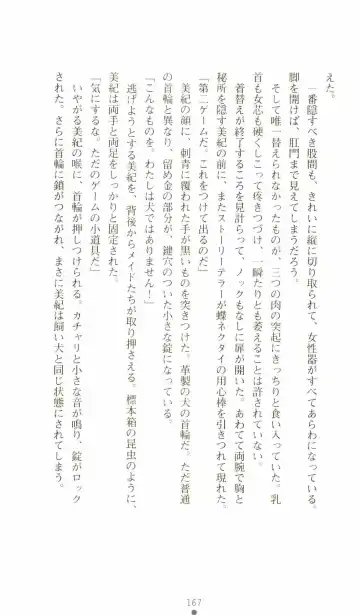 えた。
　一番隠すべき股間も、きれいに縦に切り取られて、女性器がすべてあらわになっている。
脚を開けば、肛門まで見えてしまうだろう。
　そして唯一替えられなかったものが、三つの肉の突起にきっちりと食い入っていた。乳
首も女芯も硬くしこって疼きつづけ、一瞬たりとも萎えることは許されていない。
　着替えが終了するころを見計らって、ノックもなしに扉が開いた。あわてて両腕で胸と
秘所を隠す美紀の前に、またストーリーテラーが蝶ネクタイの用心棒を引きつれて現れた。
「第二ゲームだ。これをつけて出るのだ」
　美紀の顔に、刺青に覆われた手が黒いものを突きつけた。革製の犬の首輪だ。ただ普通
の首輪と異なり、留め金の部分が、鍵穴のついた小さな錠になっている。
「こんなものを、わたしは犬ではありません！」
　逃げようとする美紀を、背後からメイドたちが取り押さえる。標本箱の昆虫のように、
美紀は両手と両足をしっかりと固定された。
「気にするな。ただのゲームの小道具だ」
　いやがる美紀の喉に、首輪が押しつけられる。カチャリと小さな音が鳴り、錠がロック
された。さらに首輪に鎖がつながれ、まさに美紀は飼い犬と同じ状態にされてしまう。
167